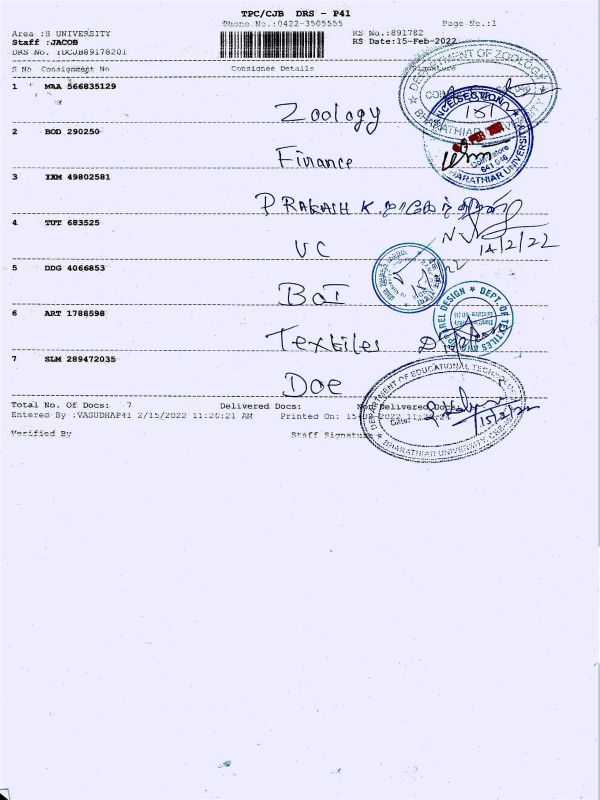 TPC/CJB DRS - P41
Phone No.:0422-3505555 Page No.:1
Area :B UNIVERSITY RS No.:891782
Staff :JACOB RS Date:15-Feb-2022
DRS No. :DCJB89178201
S No Consignment No Consignee Details Signature
1 MAA 566835129 Zoology
DEPARTMENT OF ZOOLOGY
BHARATHIAR UNIVERSITY
2 BOD 290250 Finance
BHARATHIAR UNIVERSITY
Coimbatore
641 046
3 IXM 49802581 PRAKASH K.
4 TUT 683525 VC
14/2/22
5 DDG 4066853 BOI
6 ART 1788598 Textiles
DEPT. OF TEXTILES APPAREL DESIGN
7 SLM 289472035 Doe
DEPARTMENT OF EDUCATIONAL
Date: 15/2/22
BHARATHIAR UNIVERSITY
Total No. Of Docs: 7 Delivered Docs: Non Delivered Docs:
Entered By :VASUDHAP41 2/15/2022 11:26:21 AM Printed On: 15-02-2022
Verified By Staff Signature